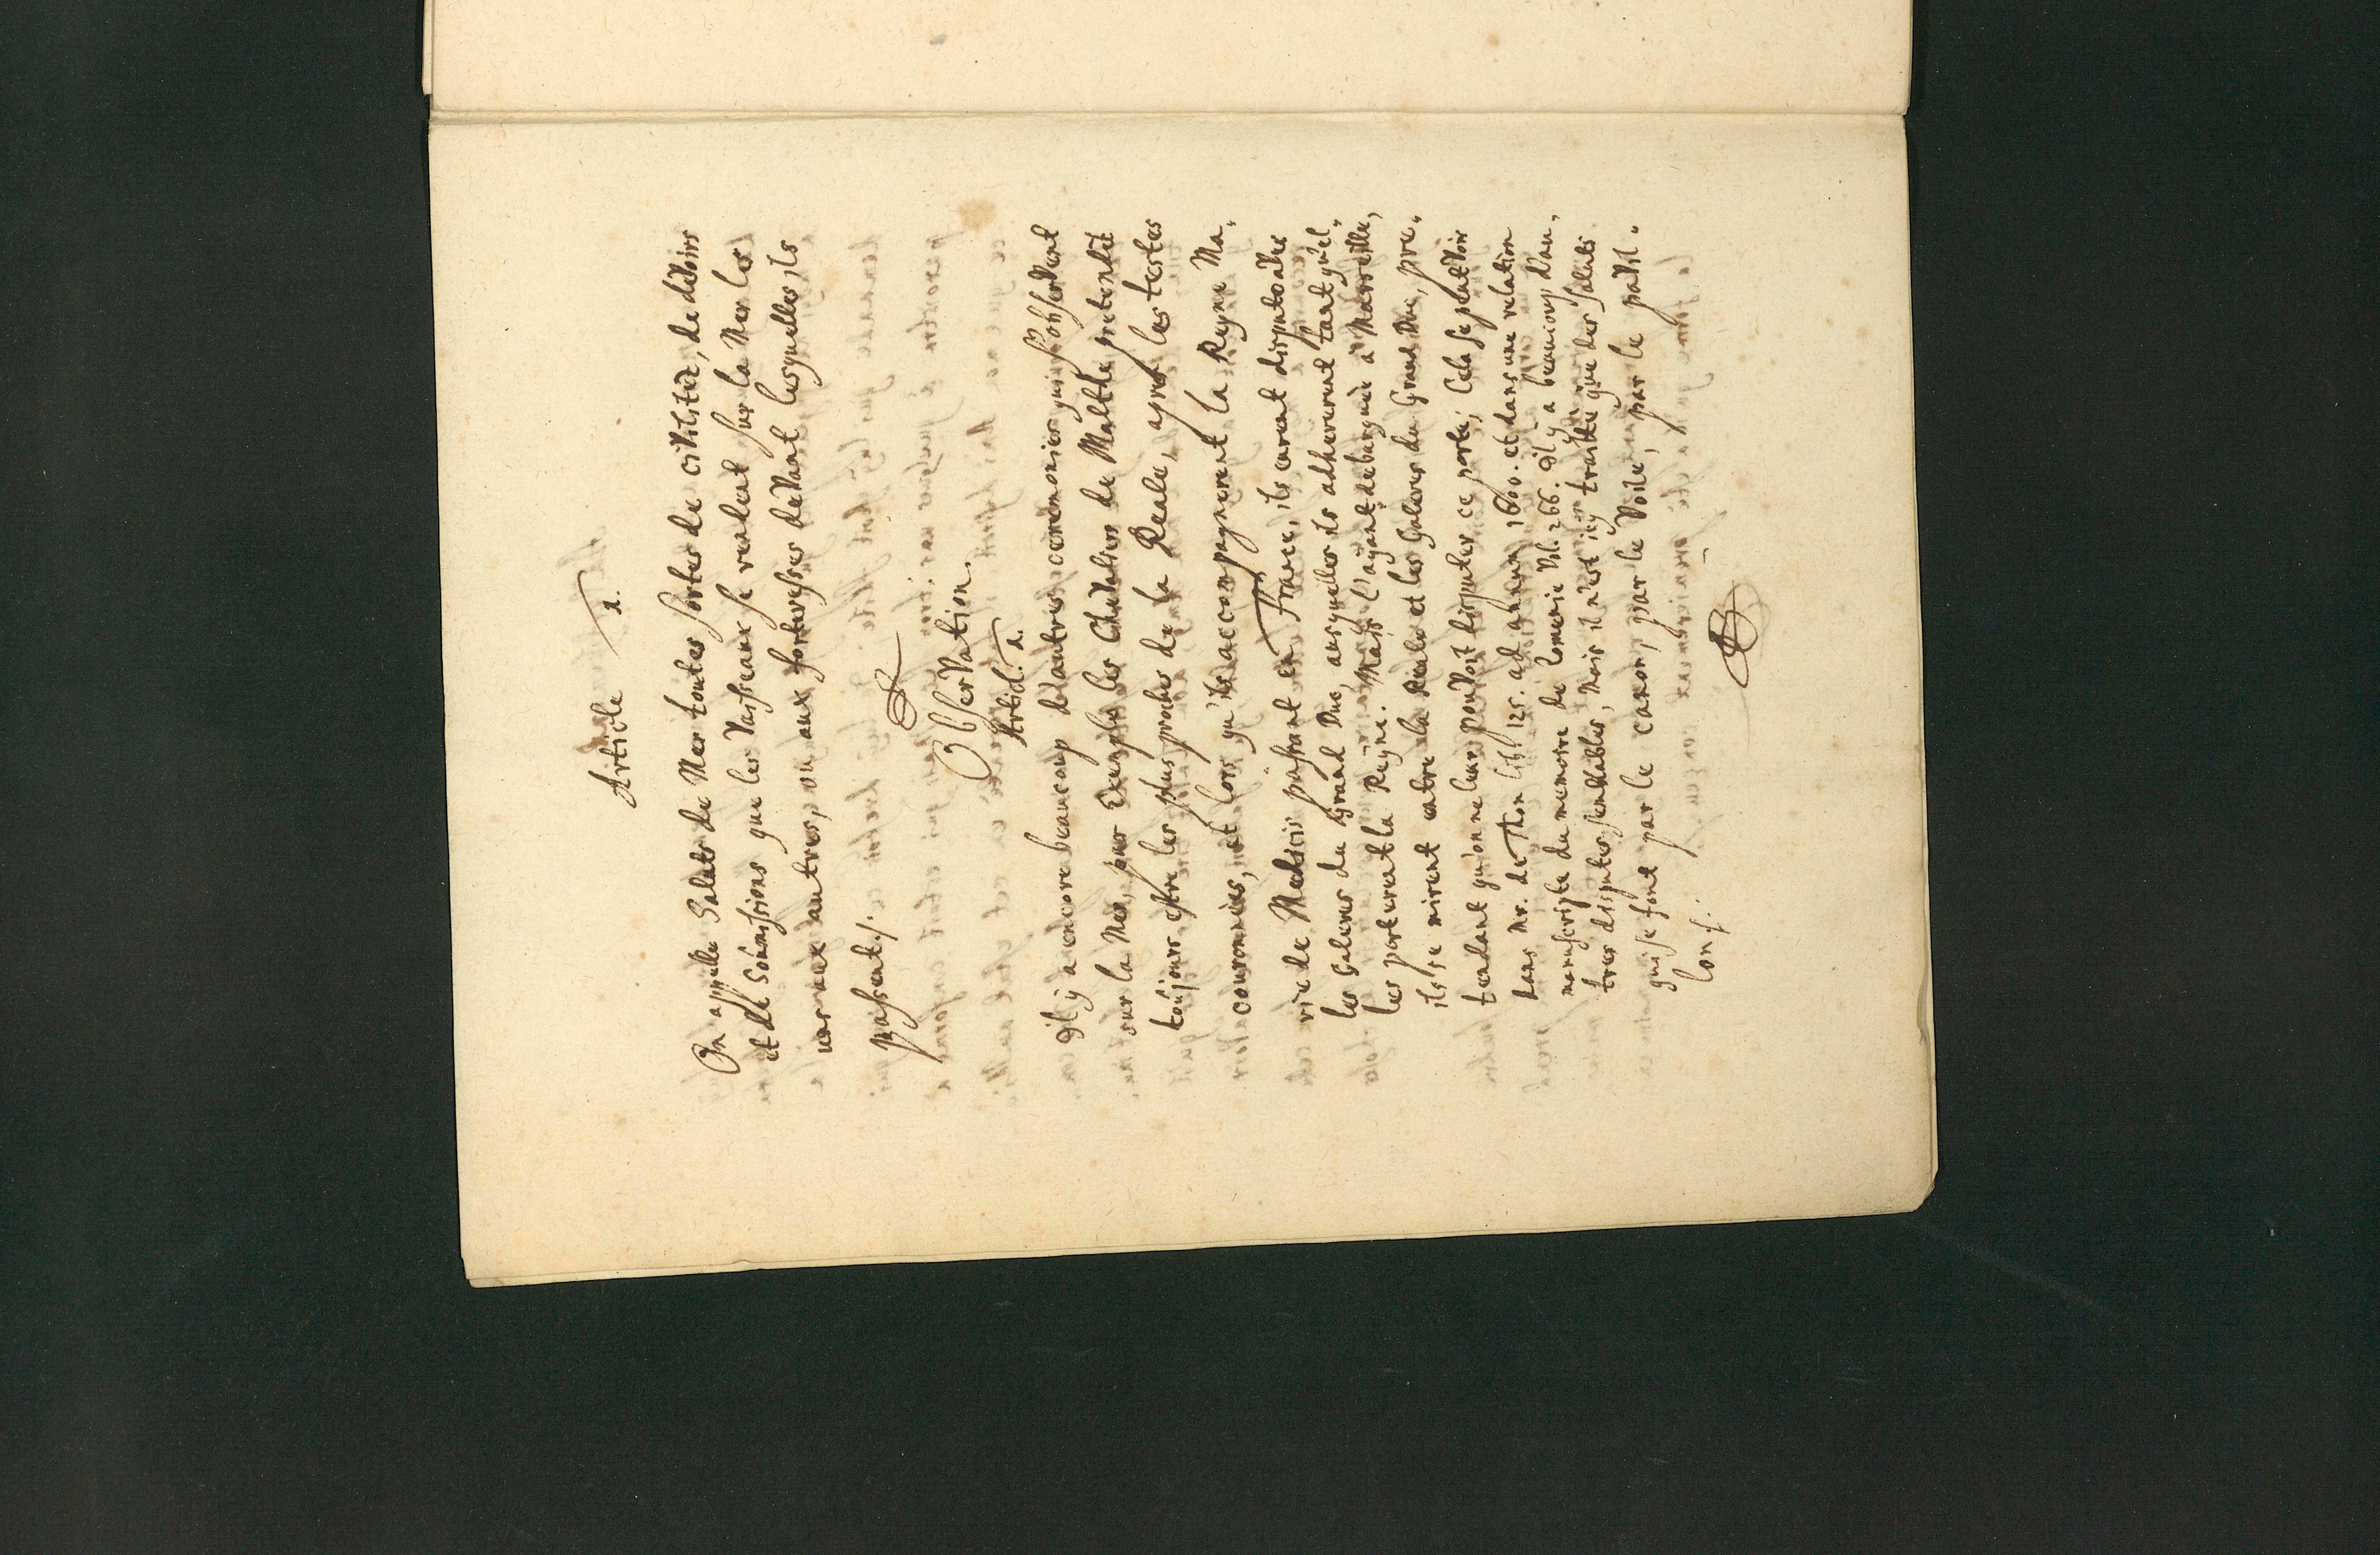 Article 1.
On appelle Saluts de Mer toutes sortes de civilitez, de devoirs
et de soûmissions que les Vaisseaux se rendent sur la Mer les
uns aux autres, ou aux forteresses devant lesquelles ils
passent /.
Observation.
Articl. 1.
Il y a encore beaucoup d'autres ceremonies qui s'observent
sur la Mer, pour Exemple les Chevaliers de Malthe pretendēt
toujours estre les plus proches de la Reale, apres les testes
couronnées, et lors qu'ils accompagnerent la Reyne Ma„
rie de Medicis passant en France, ils eurent dispute avec
les Galeres du Grand Duc, ausquelles ils adhererent tant qu'el„
les porterent la Reyne. Mais l'ayant debarquée à Marseille,
ils se mirent entre la Reale et les Galeres du Grand Duc, pre„
tendant qu'on ne leur pouvoit disputer ce poste; Cela se peut voir
dans Mr. de Thou lib. 125. ad annum 1600. et dans une relation
manuscripte du memoire de Lomenie Vol. 266. Il y a beaucoup d'au„
tres disputes semblables, mais il n'est icy traitté que des saluts
qui se font par le canon, par le Voile, par le pavil„
lon /.